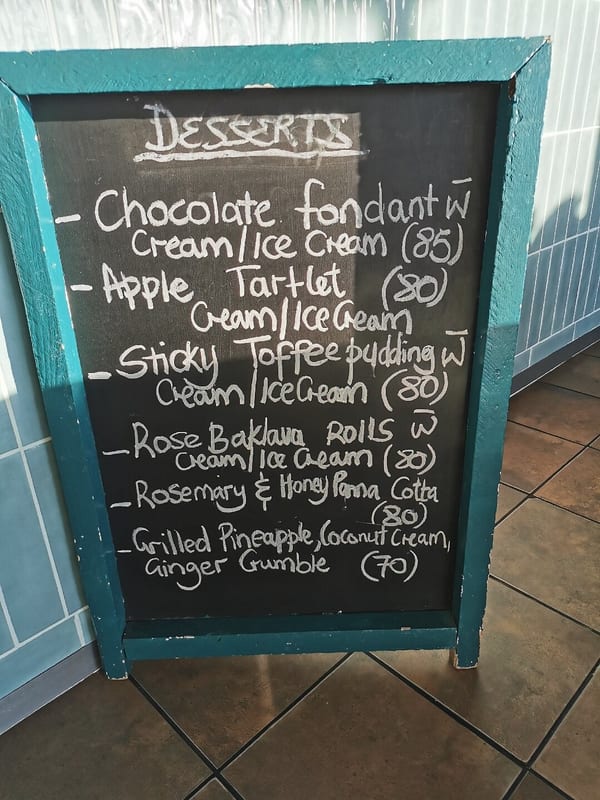 DESSERTS
- Chocolate fondant w̄
Cream/Ice Cream (85)
- Apple Tartlet (80)
Cream/Ice Cream
- Sticky Toffee pudding w̄
Cream/Ice Cream (80)
- Rose Baklava ROllS w̄
Cream/Ice Cream (80)
- Rosemary & Honey Panna Cotta
(80)
- Grilled Pineapple, Coconut Cream,
Ginger Crumble (70)